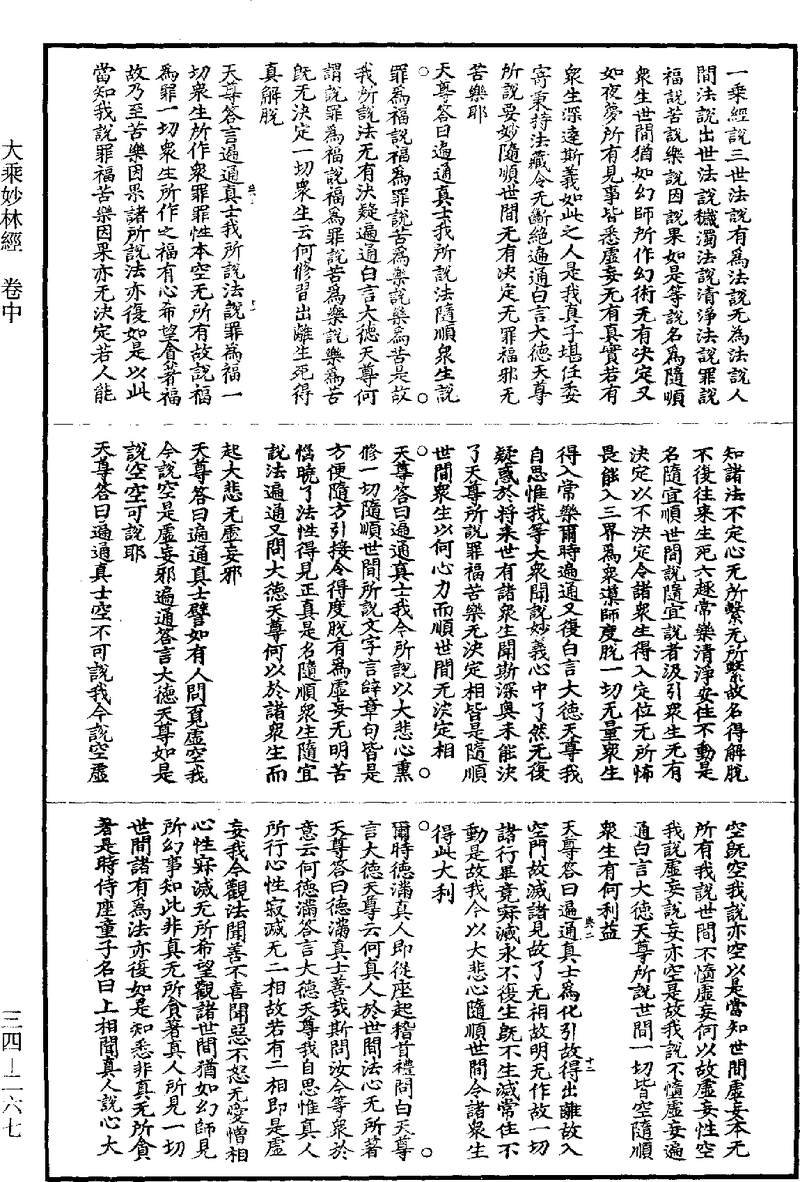 一乘經說三世法說有為法說无為法說人
間法說出世法說穢濁法說清淨法說罪說
福說苦說樂說因說果如是等說名為隨順
衆生世間猶如幻師所作幻術无有決定又
如夜夢所有見事皆悉虛妄无有真實若有
衆生深達斯義如此之人是我真子堪任委
寄秉持法藏令无斷絕遍通白言大德天尊
所說要妙隨順世間无有決定无罪福邪无
苦樂耶
天尊答曰遍通真士我所說法隨順衆生說
罪為福說福為罪說苦為樂說樂為苦是故
我所說法无有決疑遍通白言大德天尊何
謂說罪為福說福為罪說苦為樂說樂為苦
既无決定一切衆生云何修習出離生死得
真解脫
天尊答言遍通真士我所說法說罪為福一
切衆生所作衆罪罪性本空无所有故說福
為罪一切衆生所作之福有心希望貪著福
故乃至苦樂因果諸所說法亦復如是以此
當知我說罪福苦樂因果亦无決定若人能
知諸法不定心无所繫无所繫故名得解脫
不復往来生死六趣常樂清淨安住不動是
名隨宜順世間說隨宜說者汲引衆生无有
決定以不決定令諸衆生得入定位无所怖
畏能入三界為衆導師度脫一切无量衆生
得入常樂爾時遍通又復白言大德天尊我
自思惟我等大衆聞說妙義心中了然无復
疑惑於將来世有諸衆生聞斯深奥未能決
了天尊所說罪福苦樂无決定相皆是隨順
世間衆生以何心力而順世間无決定相
天尊答曰遍通真士我今所說以大悲心熏
修一切隨順世間所說文字言辝章句皆是
方便隨方引接令得度脫有為虛妄无明苦
惱曉了法性得見正真是名隨順衆生隨宜
說法遍通又問大德天尊何以於諸衆生而
起大悲无虛妄邪
天尊答曰遍通真士譬如有人問覓虛空我
今說空是虛妄邪遍通答言大德天尊如是
說空空可說耶
天尊答曰遍通真士空不可說我今說空虛
空既空我說亦空以是當知世間虛妄本无
所有我說世間不憶虛妄何以故虛妄性空
我說虛妄說妄亦空是故我說不憶虛妄遍
通白言大德天尊所說世間一切皆空隨順
衆生有何利益
天尊答曰遍通真士為化引故得出離故入
空門故滅諸見故了无相故明无作故一切
諸行畢竟寂滅永不復生既不生滅常住不
動是故我今以大悲心隨順世間令諸衆生
得此大利
爾時德滿真人即從座起稽首禮問白天尊
言大德天尊云何真人於世間法心无所著
天尊答曰德滿真士善哉斯問汝今等衆於
意云何德滿答言大德天尊我自思惟真人
所行心性寂滅无二相故若有二相即是虛
妄我今觀法聞善不喜聞惡不怒无愛憎相
心性寂滅无所希望觀諸世間猶如幻師見
所幻事知此非真无所貪著真人所見一切
世間諸有為法亦復如是知悉非真无所貪
著是時侍座童子名曰上相聞真人說心大
大乘妙林經 卷中
三四－二六七